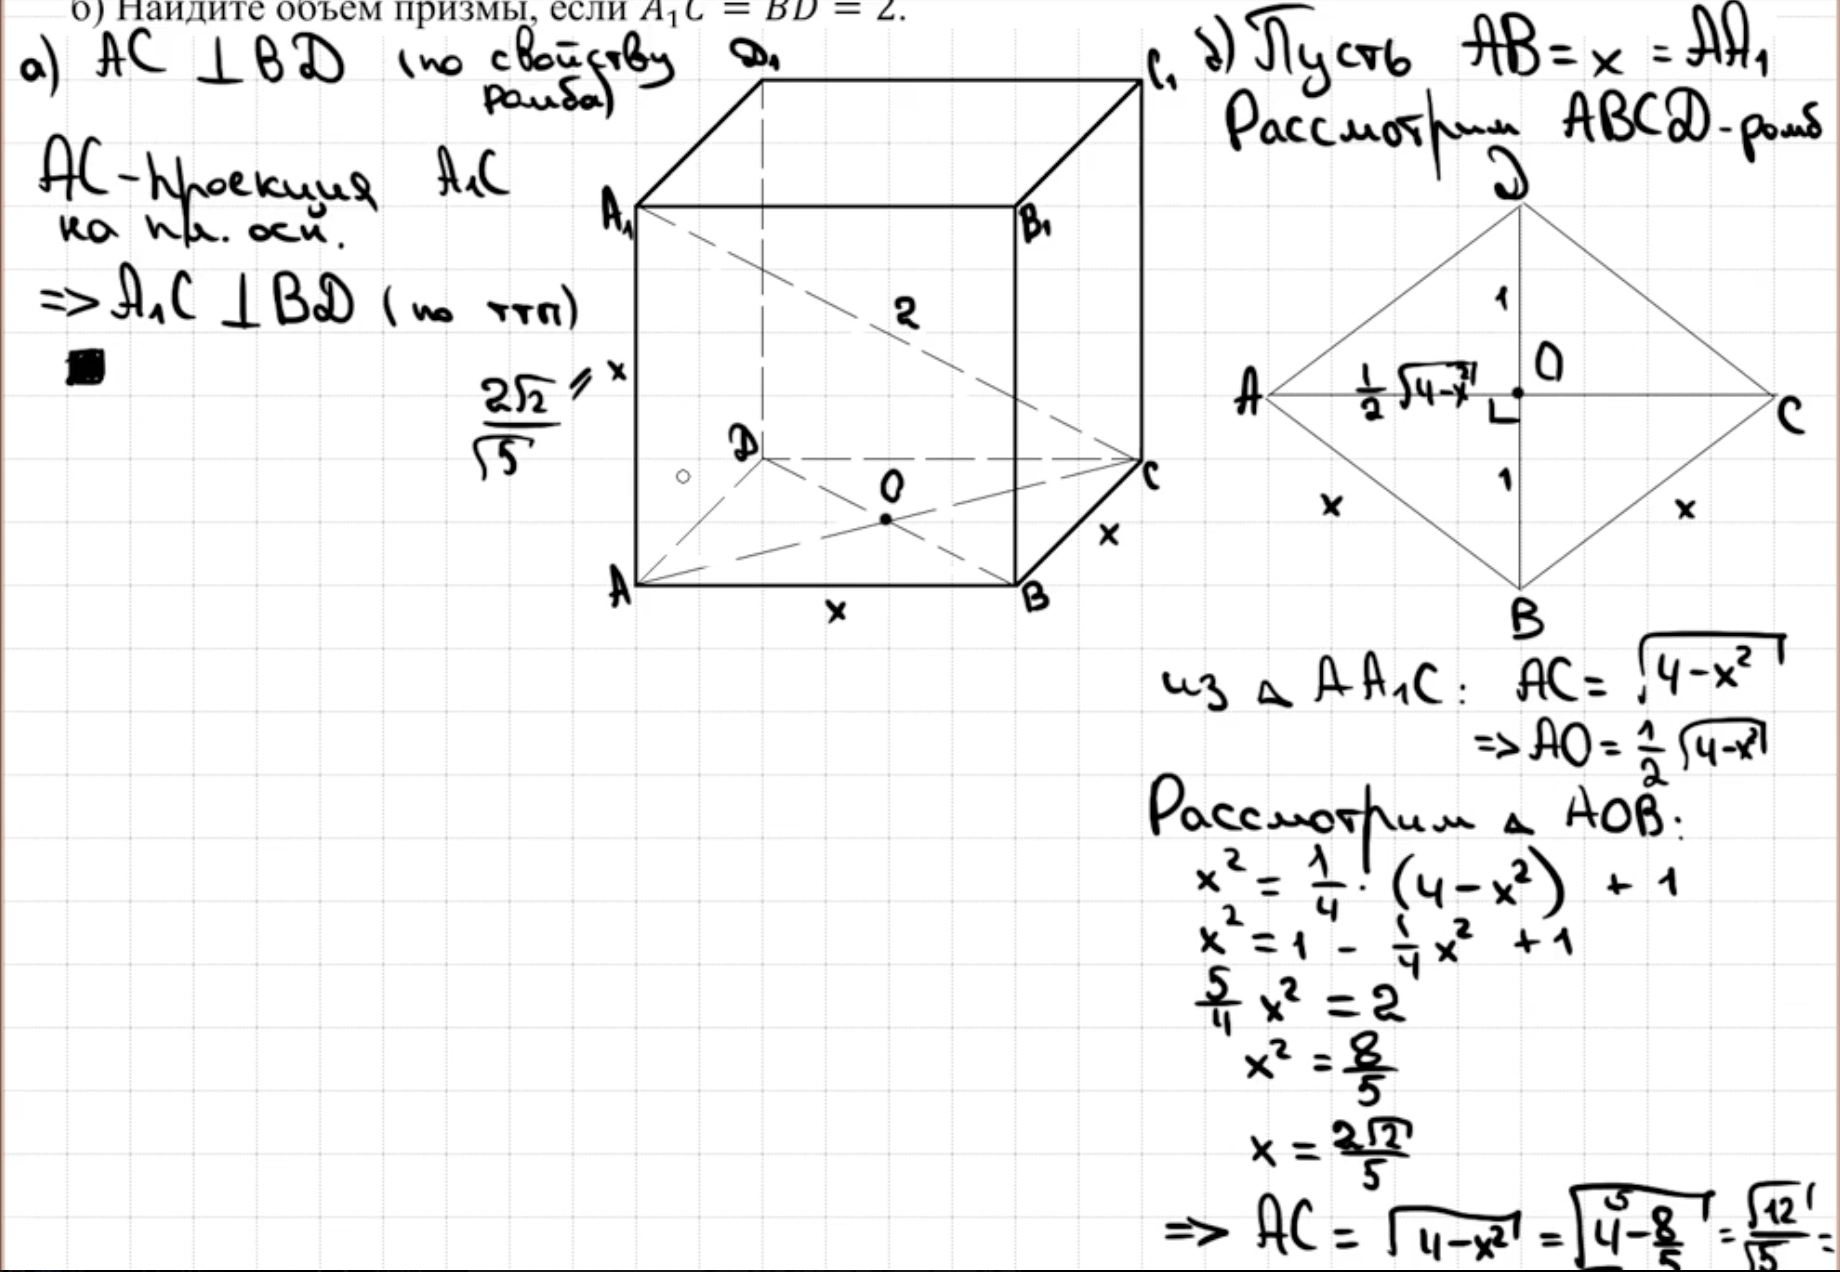 б) Найдите объем призмы, если A₁C = BD = 2.
а) AC ⊥ BD (по свойству
ромба)
AC - проекция A₁C
на пл. осн.
=> A₁C ⊥ BD (по ттп)
2√2/√5 = x
D₁
C₁
A₁
B₁
2
D
O
C
x
A
x
B
б) Пусть AB = x = AA₁
Рассмотрим ABCD - ромб
D
1
O
A
1/2 √4-x²
C
1
x
x
B
из △ AA₁C: AC = √4-x²
=> AO = 1/2 √4-x²
Рассмотрим △ AOB:
x² = 1/4 · (4-x²) + 1
x² = 1 - 1/4 x² + 1
5/4 x² = 2
x² = 8/5
x = 2√2/5
=> AC = √4-x² = √4⁵-8/5 = √12/√5 =